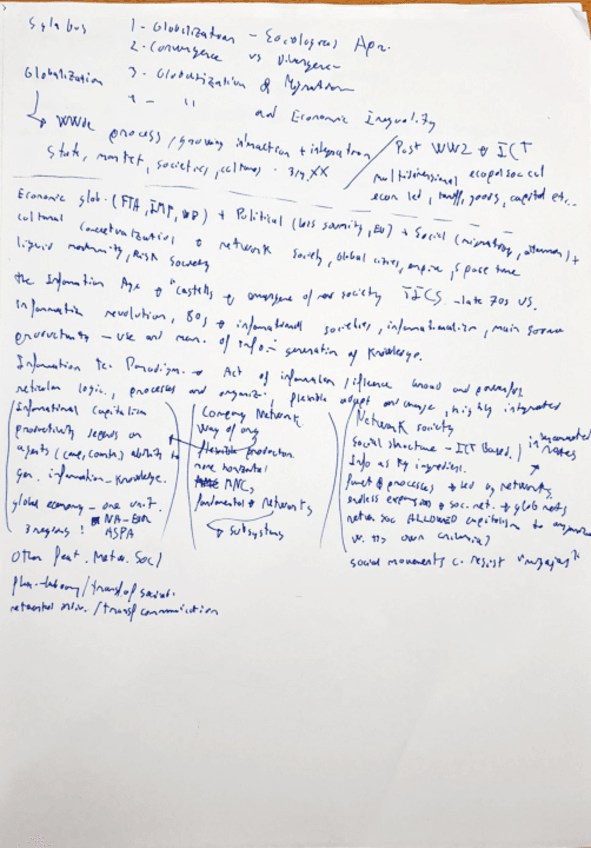 Sylabus 1 - Globalization - Sociological Apr.
2. Convergence vs Divergence
Globalization 3. Globalization & Migration
4 - " and Economic Inequality
WWde process / growing interaction + integration / Post WW2 ICT
State, market, societies, cultures. XX multidimensional
econ led, goods, capital etc...
Economic glob. (FTA, IMF, WB) + Political (loss , EU) + Social (migrations, ) +
cultural network society, Global cities, empire, space time
liquid modernity, Risk Society
the Information Age "Castells emergence of new society TICS - late 70s US.
information revolution, 80s informational societies, informationalism, main source
productivity - use and of info - generation of knowledge.
Information Te. Paradigm. Act of information / broad and powerful
reticular logic, processes and organiz., flexible adapt and change, highly integrated
(Informational Capitalism
productivity depends on
agents (comp, countr) ability to
gen. information - knowledge.
global economy - one unit.
3 regions! NA - EUR
ASPA
Company Network
Way of org
flexible production
more horizontal
MNCs
fundamental networks
subsystems
Network society
social structure - ICT Based. interconnected nodes
Info as key ingredient.
Funct & processes led by networks.
endless expansion soc. net. glob nets
networ soc ALLOWED capitalism to
w. its own criteria)
Other Feat. Networ. Soc /
social movements c. resist
/ transf of social.
/ transf communication